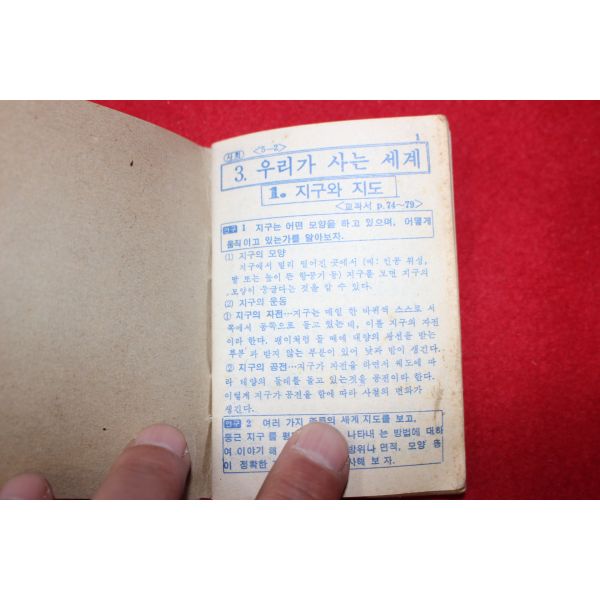 사회 <5-2> 1
3. 우리가 사는 세계
1. 지구와 지도
<교과서 p.74~79>
연구 1 지구는 어떤 모양을 하고 있으며, 어떻게
움직이고 있는가를 알아보자.
(1) 지구의 모양
지구에서 멀리 떨어진 곳에서 (예: 인공 위성,
달 또는 높이 뜬 항공기 등) 지구를 보면 지구의
모양이 둥글다는 것을 알 수 있다.
(2) 지구의 운동
① 지구의 자전…지구는 매일 한 바퀴씩 스스로 서
쪽에서 동쪽으로 돌고 있는데, 이를 지구의 자전
이라 한다. 팽이처럼 돌 때에 태양의 광선을 받는
부분과 받지 않는 부분이 있어 낮과 밤이 생긴다.
② 지구의 공전…지구가 자전을 하면서 궤도에 따
라 태양의 둘레를 돌고 있는것을 공전이라 한다.
이렇게 지구가 공전을 함에 따라 사철의 변화가
생긴다.
연구 2 여러 가지 종류의 세계 지도를 보고,
둥근 지구를 평 나타내는 방법에 대하
여 이야기 해 방위나 면적, 모양 등
이 정확한 사해 보자.